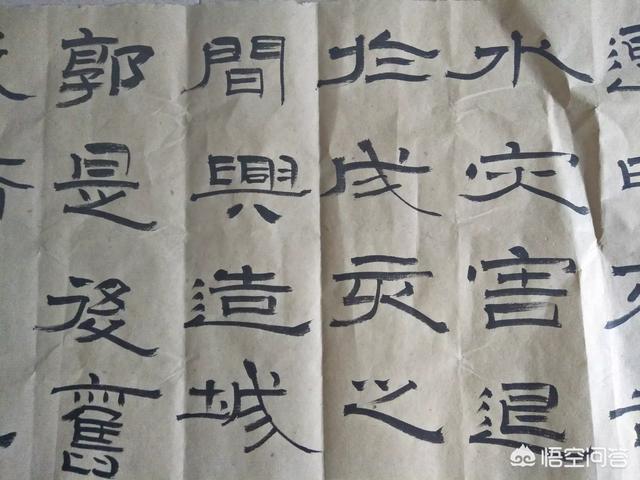 水灾害退
於戌亥之
間興造城
郭是後舊
悟空问答